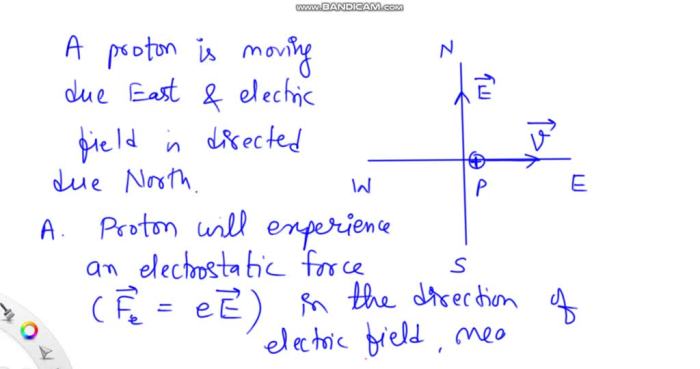 www.BANDICAM.com
A proton is moving
due East & electric
field is directed
due North.
N
E
V
W
P
E
S
A. Proton will experience
an electrostatic force
(Fe = eE) in the direction of
electric field, mea